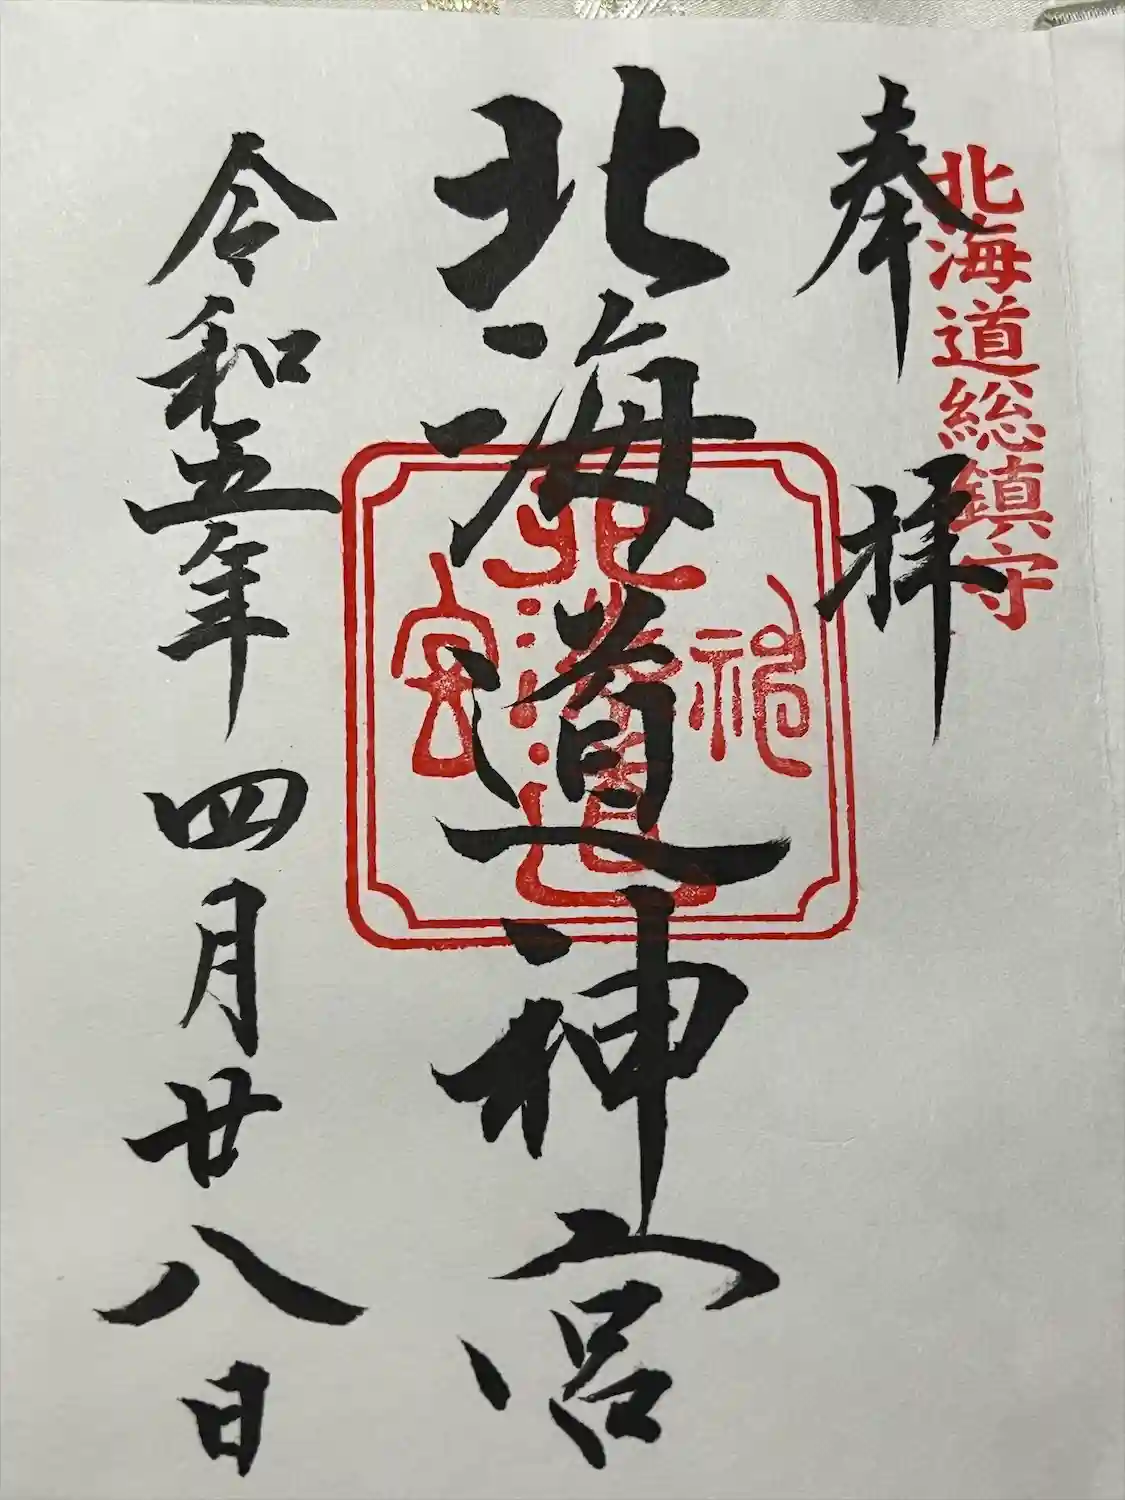 北海道総鎮守
奉拝
北海道神宮
令和五年四月廿八日